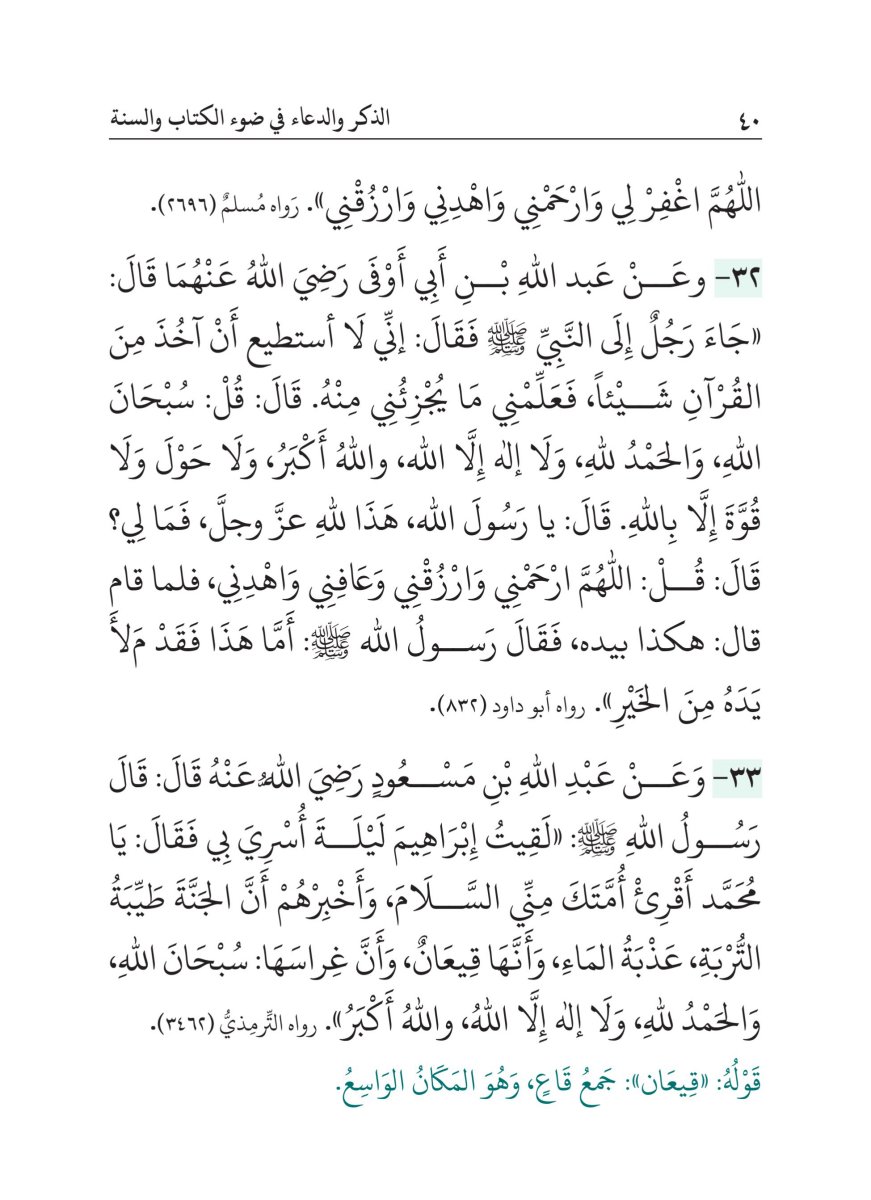 ٤٠ الذكر والدعاء في ضوء الكتاب والسنة
اللّٰهُمَّ اغْفِرْ لِي وَارْحَمْنِي وَاهْدِنِي وَارْزُقْنِي». رَواه مُسلمٌ (٢٦٩٦).
٣٢- وعَـــنْ عَبد اللهِ بْـــنِ أَبِي أَوْفَى رَضِيَ اللهُ عَنْهُمَا قَالَ:
«جَاءَ رَجُلٌ إِلَى النَّبِيِّ ﷺ فَقَالَ: إنِّي لَا أستطيع أَنْ آخُذَ مِنَ
القُرْآنِ شَـــيْئاً، فَعَلِّمْنِي مَا يُجْزِئُنِي مِنْهُ. قَالَ: قُلْ: سُبْحَانَ
اللهِ، وَالحَمْدُ للهِ، وَلَا إلٰه إِلَّا الله، واللهُ أَكْبَرُ، وَلَا حَوْلَ وَلَا
قُوَّةَ إِلَّا بِاللهِ. قَالَ: يا رَسُولَ الله، هَذَا للهِ عزَّ وجلَّ، فَمَا لِي؟
قَالَ: قُـــلْ: اللّٰهُمَّ ارْحَمْنِي وَارْزُقْنِي وَعَافِنِي وَاهْدِنِي، فلما قام
قال: هكذا بيده، فَقَالَ رَســـولُ الله ﷺ: أَمَّا هَذَا فَقَدْ مَلأَ
يَدَهُ مِنَ الخَيْرِ». رواه أبو داود (٨٣٢).
٣٣- وَعَـــنْ عَبْدِ اللهِ بْنِ مَسْـــعُودٍ رَضِيَ اللهُ عَنْهُ قَالَ: قَالَ
رَسُـــولُ اللهِ ﷺ: «لَقِيتُ إِبْرَاهِيمَ لَيْلَـــةَ أُسْرِيَ بِي فَقَالَ: يَا
مُحَمَّد أَقْرِئْ أُمَّتَكَ مِنِّي السَّـــلَامَ، وَأَخْبِرْهُمْ أَنَّ الجَنَّةَ طَيِّبَةُ
التُّرْبَةِ، عَذْبَةُ المَاءِ، وَأَنَّهَا قِيعَانٌ، وَأَنَّ غِراسَهَا: سُبْحَانَ اللهِ،
وَالحَمْدُ للهِ، وَلَا إلٰه إِلَّا اللهُ، واللهُ أَكْبَرُ». رواه التِّرمِذيُّ (٣٤٦٢).
قَوْلُهُ: «قِيعَان»: جَمعُ قَاعٍ، وَهُوَ المَكَانُ الوَاسِعُ.